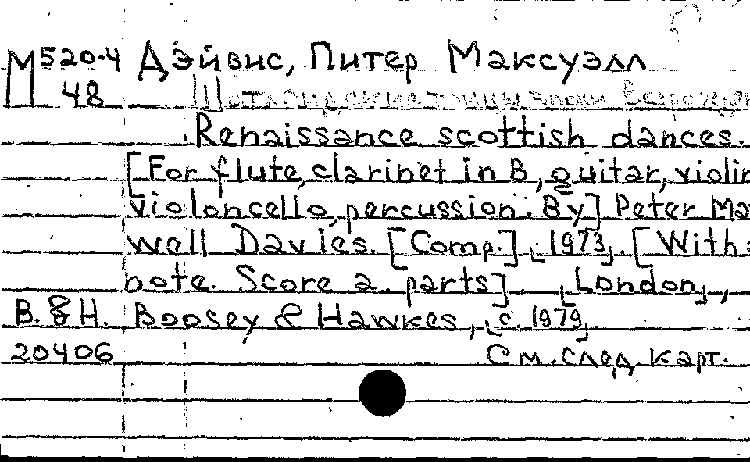 М 520-4 Дэйвис, Питер Максуэлл
48 Шотландские танцы эпохи
Renaissance scottish dances.
[For flute, clarinet in B, guitar, violin
violoncello, percussion. By] Peter Max
well Davies. [Comp.] 1973. [With a
note. Score a. parts]. [London],
B. & H. Boosey & Hawkes, [c. 1979]
20406 См. след. карт.